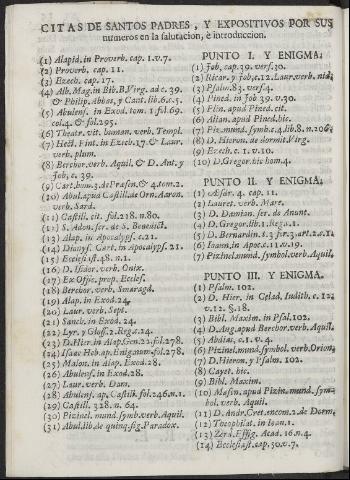 CITAS DE SANTOS PADRES, Y EXPOSITIVOS POR SUS
numeros en la salutacion, è introduccion.
(1) Alapid. in Proverb. cap. 1. v. 7.
(2) Proverb. cap. 11.
(3) Ezech. cap. 17.
(4) Alb. Mag. in Bib. B. Virg. ad c. 39.
& Philip. Abbas, y Cant. lib. 6. c. 5.
(5) Abulens. in Exod. tom. 1. fol. 69.
col. 4. & fol. 295.
(6) Theatr. vit. human. verb. Templ.
(7) Hect. Pint. in Ezech. 17. & Laur.
verb. plum.
(8) Berchor. verb. Aquil. & D. Ant. y
Job, c. 39.
(9) Cart. hom. 3. de Præsen. & 4. tom. 2.
(10) Abul. apud Castill. de Orn. Aaron.
verb. Sard.
(11) Castill. cit. fol. 218. n. 80.
(12) S. Adon. ser. de S. Benedict.
(13) Alap. in Apocalyps. 21.
(14) Dionys. Cart. in Apocalyps. 21.
(15) Ecclesiast. 48. n. 1.
(16) D. Isidor. verb. Onix.
(17) Ex Offic. prop. Eccles.
(18) Berchor. verb. Smaragd.
(19) Alap. in Exod. 24.
(20) Laur. verb. Sept.
(21) Sanch. in Exod. 24.
(22) Lyr. y Gloss. 2. Reg. 24.
(23) D. Hier. in Alap. Gen. 22. fol. 278.
(24) Isaac Heb. ap. Enigm. fol. 278.
(25) Malon. in Alap. Exod. 28.
(26) Abulens. in Exod. 28.
(27) Laur. verb. Dam.
(28) Abulens. ap. Castill. fol. 246. n. 1.
(29) Castill. 328. n. 64.
(30) Pizinel. mund. symb. verb. Aquil.
(31) Abul. lib. de quinq. fig. Paradox.
PUNTO I. Y ENIGMA.
(1) Job, cap. 39. vers. 30.
(2) Ricar. y Job, c. 12. Laur. verb. nid.
(3) Psalm. 83. vers. 4.
(4) Pined. in Job 39. v. 30.
(5) Plin. apud Pined. cit.
(6) Alian. apud Pined. hic.
(7) Piz. mund. symb. c. 4. lib. 8. n. 206.
(8) D. Hieron. de dormit. Virg.
(9) Ezech. c. 1. v. 10.
(10) D. Gregor. hic hom. 4.
PUNTO II. Y ENIGMA.
(1) 4. cap. 11.
(2) Lauret. verb. Mare.
(3) D. Damian. ser. de Anunt.
(4) D. Gregor. lib. 1. Reg. c. 1.
(5) D. Bernardin.
(6) Ioann. in Apoc. c. 12. v. 19.
(7) Pizinel. mund. symbol. verb. Aquil.
PUNTO III. Y ENIGMA.
(1) Psalm. 102.
(2) D. Hier. in Celad. Iudith. c. 12.
v. 12. §. 18.
(3) Bibl. Maxim. in Psal. 102.
(4) D. Aug. apud Berchor. verb. Aquil.
(5) Abdias, c. 1. v. 4.
(6) Pizinel. mund. symbol. verb. Orion.
(7) D. Hieron. y Psalm. 102.
(8) Cayet. hic.
(9) Bibl. Maxim.
(10) Masen. apud Pizin. mund. symbol. verb. Aquil.
(11) D. Andr. Cret. encom. 2. de Dorm.
(12) Theophilat. in Ioan. 1.
(13) Zerd. Effig. Acad. 16. n. 4.
(14) Ecclesiast. cap. 30. v. 7.